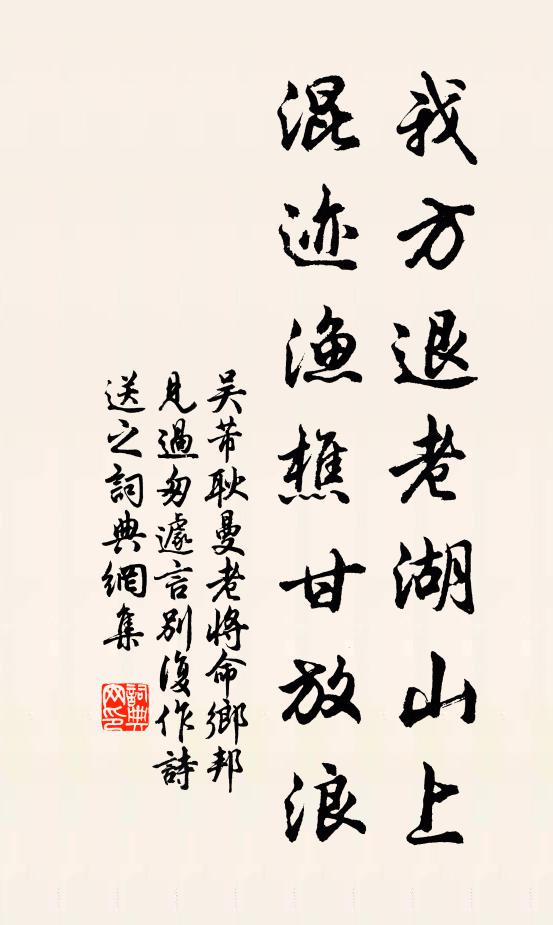 我方退老湖山上
混迹渔樵甘放浪
吴芾耿曼老将命鄉邦
見過匆遽言别復作詩
送之詞典網集
詞典网印